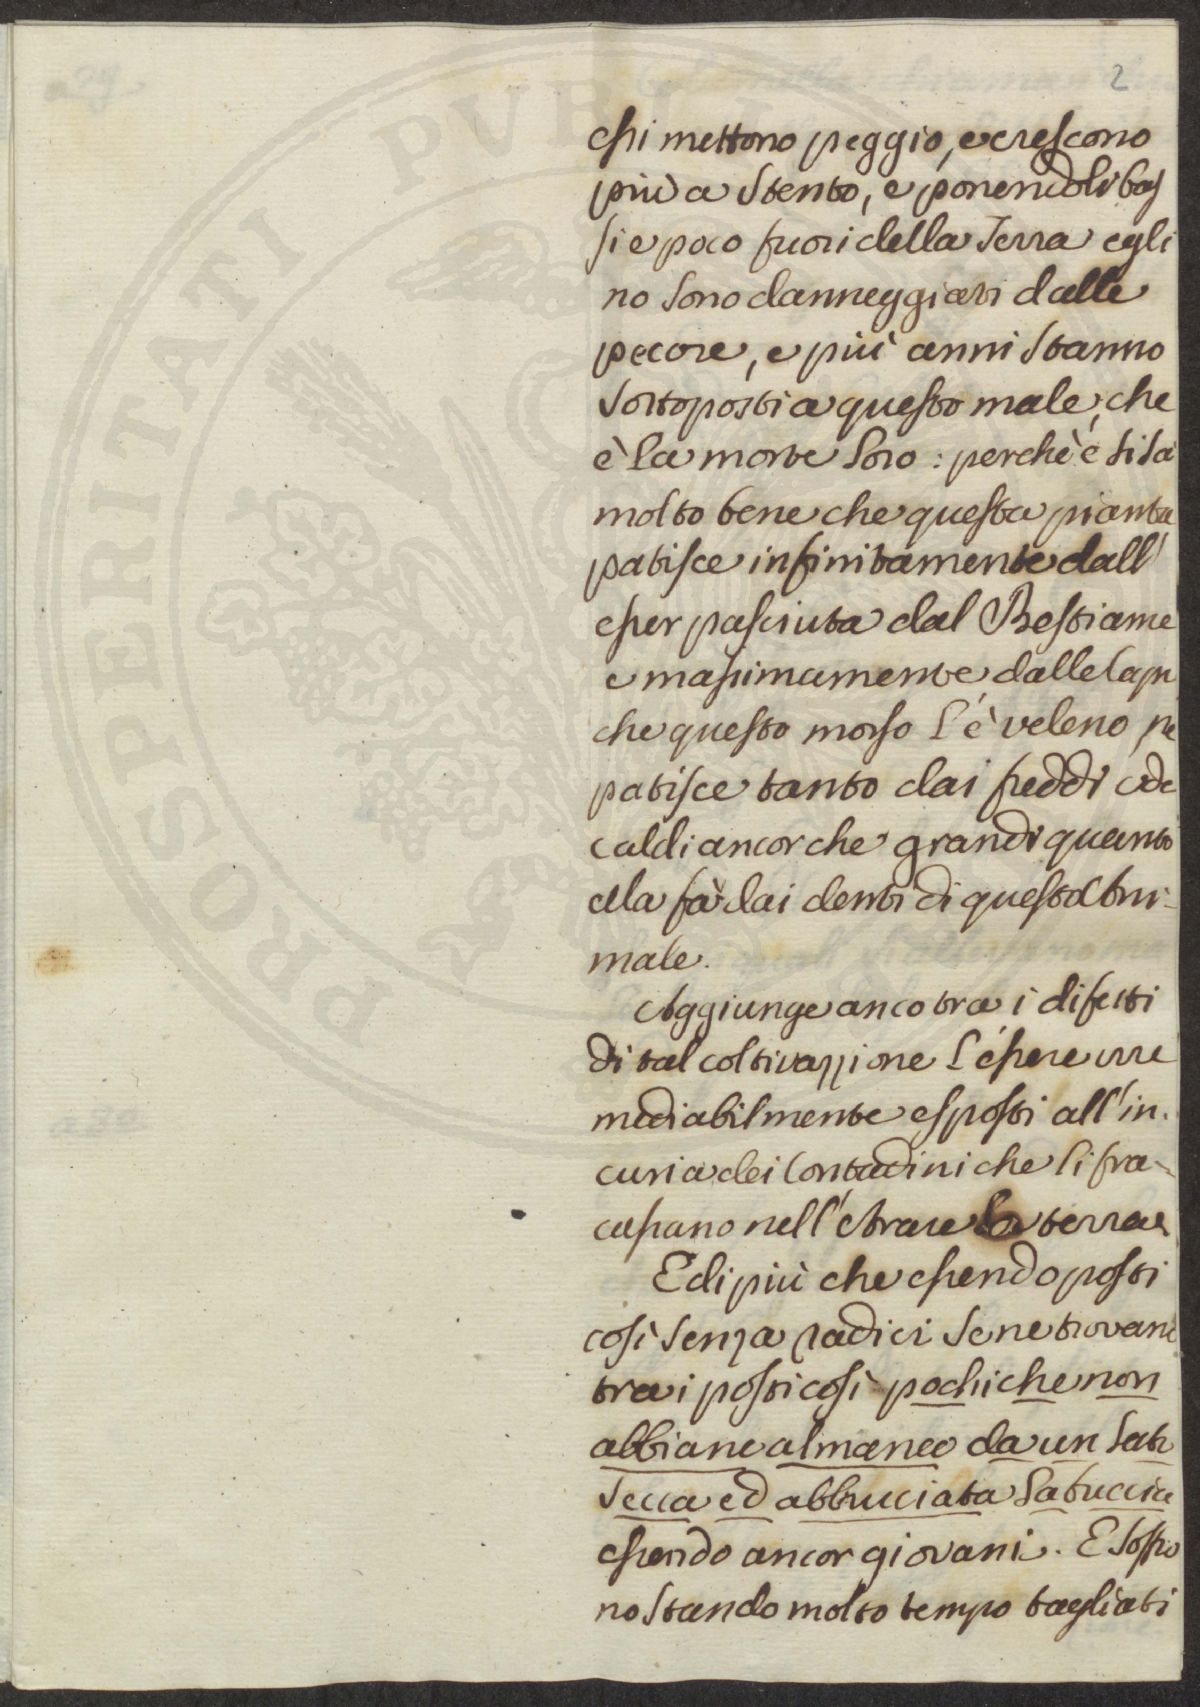 2
essi mettono peggio, e crescono
più a stento, e ponendoli bas
si e poco fuori della Terra egli
no sono danneggiati dalle
pecore, e più anni stanno
sottoposti a questo male, che
è la morte loro : perchè è si sa
molto bene che questa pianta
patisce infinitamente dall'
esser pasciuta dal Bestiame
e massimamente dalle Capre
che questo morso l'è veleno, ne
patisce tanto dai freddi e de
caldi ancorche grandi quanto
ella fà dai denti di questo Ani-
male.
Aggiunge anco tra i difetti
di tal coltivazzione l'essere irre
mediabilmente esposti all'in-
curia dei Contadini che li fra-
cassano nell'Arare la terra
E di più che essendo posti
così senza radici se ne trovano
tra i posti così pochi che non
abbiano almanco da un lato
secca ed abbruciata la buccia
essendo ancor giovani. E soffro
no stando molto tempo tagliati
PROSPERITATI PUBLI